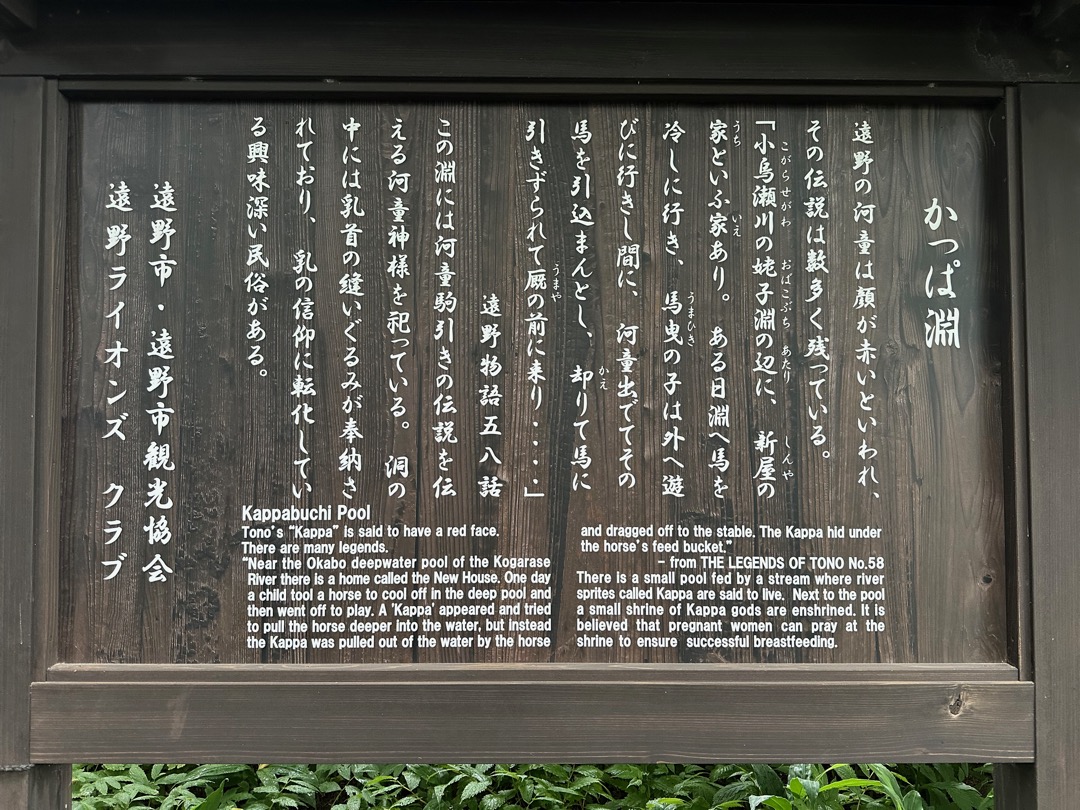 かっぱ淵
遠野の河童は顔が赤いといわれ、
その伝説は数多く残っている。
「小烏瀬川の姥子淵の辺に、新屋の
家といふ家あり。ある日淵へ馬を
冷しに行き、馬曳の子は外へ遊
びに行きし間に、河童出でてその
馬を引込まんとし、却りて馬に
引きずられて厩の前に来り・・・・」
遠野物語五八話
この淵には河童駒引きの伝説を伝
える河童神様を祀っている。洞の
中には乳首の縫いぐるみが奉納さ
れており、乳の信仰に転化してい
る興味深い民俗がある。
遠野市・遠野市観光協会
遠野ライオンズ クラブ
Kappabuchi Pool
Tono's "Kappa" is said to have a red face.
There are many legends.
"Near the Okabo deepwater pool of the Kogarase
River there is a home called the New House. One day
a child tool a horse to cool off in the deep pool and
then went off to play. A 'Kappa' appeared and tried
to pull the horse deeper into the water, but instead
the Kappa was pulled out of the water by the horse
and dragged off to the stable. The Kappa hid under
the horse's feed bucket."
- from THE LEGENDS OF TONO No.58
There is a small pool fed by a stream where river
sprites called Kappa are said to live. Next to the pool
a small shrine of Kappa gods are enshrined. It is
believed that pregnant women can pray at the
shrine to ensure successful breastfeeding.